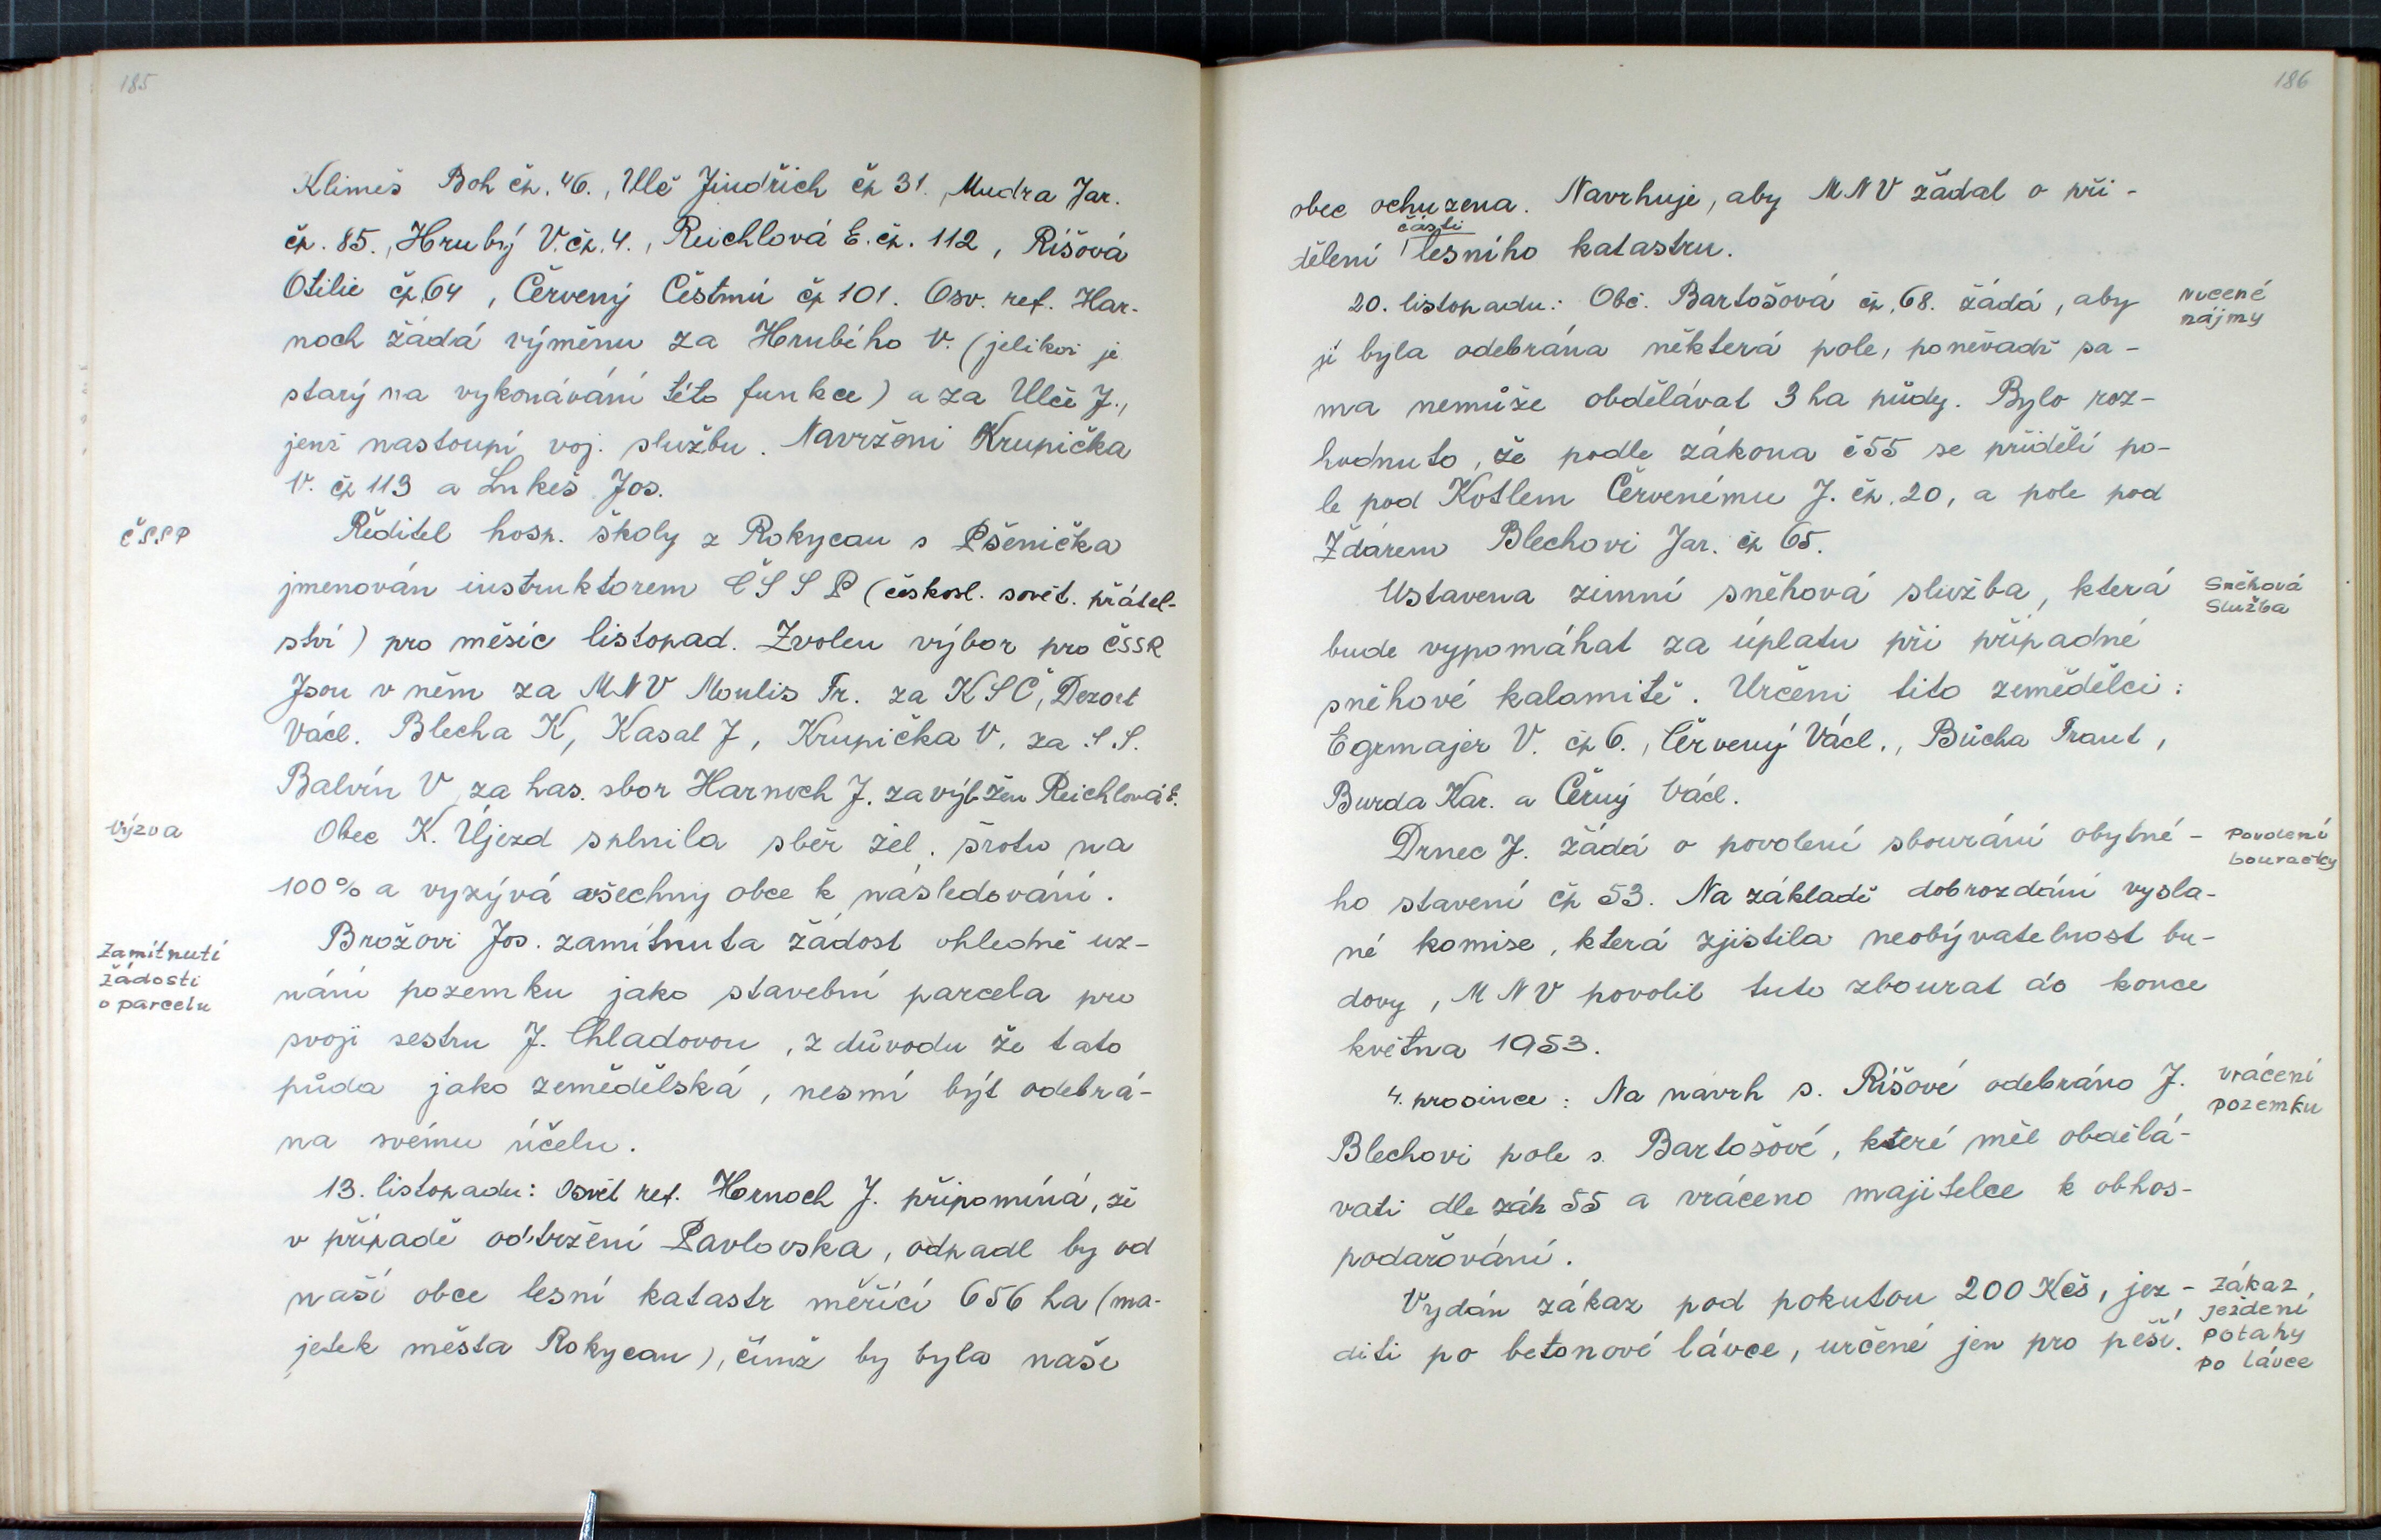 185
Klimeš Boh čp. 46., Ulč Jindřich čp 31., Mudra Jar.
čp. 85., Hrubý V. čp. 4., Reichlová E. čp. 112, Ríšová
Otilie čp 64, Červený Čestmú čp 101. Osv. ref. Har-
noch žádá výměnu za Hrubého V. (jelikož je
starý na vykonávání této funkce) a za Ulče J.,
jenž nastoupí voj. službu. Navrženi Krupička
V. čp 113 a Lukeš Jos.
ČSSP
Ředitel hosp. školy z Rokycan s Pšenička
jmenován instruktorem ČSSP (českosl. sovět. přátel-
ství) pro měsíc listopad. Zvolen výbor pro ČSSR
Jsou v něm za MNV Moulis Fr. za KSČ, Dezort
Václ. Blecha K, Kasal J, Krupička V. za SS.
Balvín V, za has. sbor Harnoch J. za výb. žen Reichlová E.
Výzva
Obec K. Újezd splnila sběr žel. šrotu na
100% a vyzývá všechny obce k následování.
Zamítnutí
žádosti
o parcelu
Brožovi Jos. zamítnuta žádost ohledně uz-
nání pozemku jako stavební parcela pro
svoji sestru J. Chladovou, z důvodu že tato
půda jako zemědělská, nesmí být odebrá-
na svému účelu.
13. listopadu: Osvět ref. Hornoch J. připomíná, že
v případě odtržení Pavlovska, odpadl by od
naší obce lesní katastr měřící 656 ha (ma-
jetek města Rokycan), čímž by byla naše
186
obec ochuzena. Navrhuje, aby MNV žádal o při-
části
dělení lesního katastru.
20. listopadu: Obč. Bartošová čp. 68. žádá, aby
nucené
nájmy
jí byla odebrána některá pole, poněvadž sa-
ma nemůže obdělávat 3 ha půdy. Bylo roz-
hodnuto, že podle zákona č 55 se přidělí po-
le pod Kotlem Červenému J. čp. 20, a pole pod
Žďárem Blechovi Jar. čp 65.
Ustavena zimní sněhová služba, která
Sněhová
Služba
bude vypomáhat za úplatu při případné
sněhové kalamitě. Určeni tito zemědělci:
Egrmajer V. čp 6., Červený Václ., Bůcha Frant,
Burda Kar. a Černý Václ.
Drnec J. žádá o povolení sbourání obytné-
Povolení
bouračky
ho stavení čp 53. Na základě dobrozdání vysla-
né komise, která zjistila neobývatelnost bu-
dovy, MNV povolil tuto zbourat do konce
května 1953.
4. prosince: Na návrh s. Ríšové odebráno J.
vrácení
pozemku
Blechovi pole s. Bartošové, které měl obdělá-
vati dle zák 55 a vráceno majitelce k obhos-
podařování.
Vydán zákaz pod pokutou 200 Kčs, jez-
diti po betonové lávce, určené jen pro pěší.
Zákaz
ježdění
potahy
po lávce